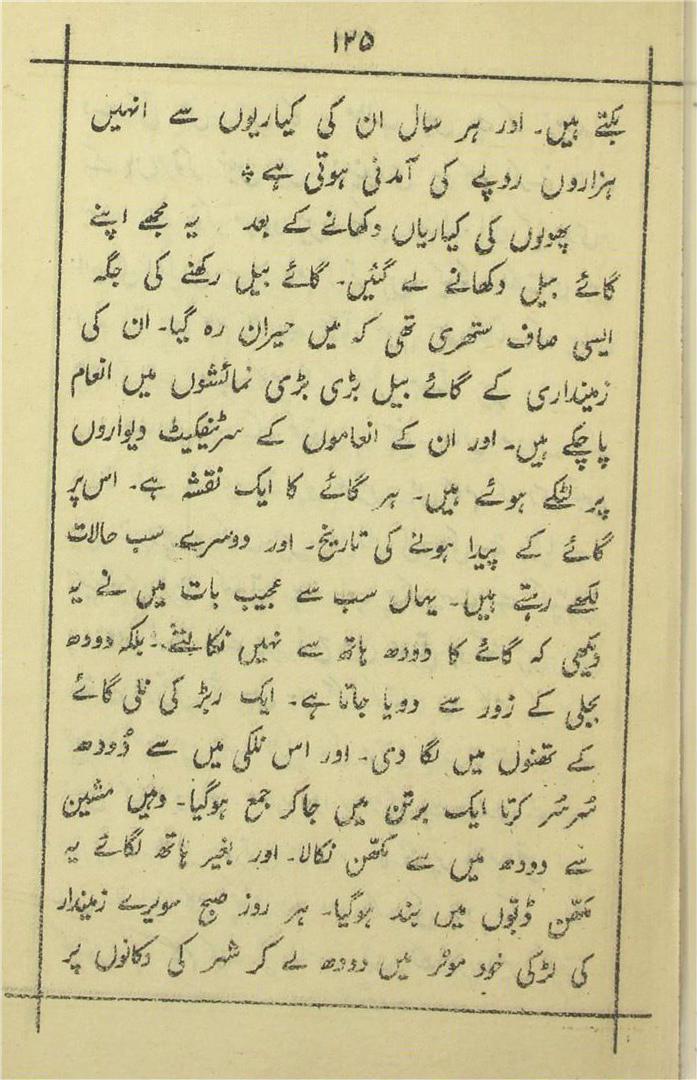 ۱۲۵
بکتے ہیں۔ اور ہر سال ان کی کیاریوں سے انہیں
ہزاروں روپے کی آمدنی ہوتی ہے ٭
پھولوں کی کیاریاں دکھانے کے بعد یہ مجھے اپنے
گائے بیل دکھانے لے گئیں۔ گائے بیل رکھنے کی جگہ
ایسی صاف ستھری تھی کہ میں حیران رہ گیا۔ ان کی
زمینداری کے گائے بیل بڑی بڑی نمائشوں میں انعام
پاچکے ہیں۔ اور ان کے انعاموں کے سرٹیفکیٹ دیواروں
پر لٹکے ہوئے ہیں۔ ہر گائے کا ایک نقشہ ہے۔ اس پر
گائے کے پیدا ہونے کی تاریخ۔ اور دوسرے سب حالات
لکھے رہتے ہیں۔ یہاں سب سے عجیب بات میں نے یہ
دیکھی کہ گائے کا دودھ ہاتھ سے نہیں نکالتے۔ بلکہ دودھ
بجلی کے زور سے دوہا جاتا ہے۔ ایک ربڑ کی نلی گائے
کے تھنوں میں لگا دی۔ اور اس نلکی میں سے دُودھ
سُرسُر کرتا ایک برتن میں جاکر جمع ہوگیا۔ وہیں مشین
سے دودھ میں سے مکھّن نکالا۔ اور بغیر ہاتھ لگائے یہ
مکھّن ڈبّوں میں بند ہوگیا۔ ہر روز صبح سویرے زمیندار
کی لڑکی خود موٹر میں دودھ لے کر شہر کی دکانوں پر